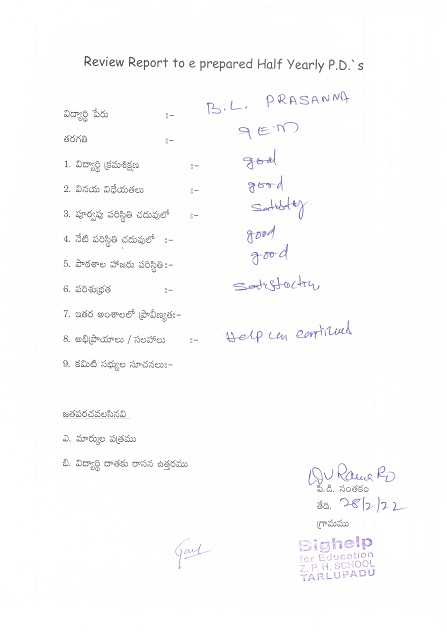 Review Report to e prepared Half Yearly P.D.`s
విద్యార్థి పేరు :- B.L. PRASANNA
తరగతి :- 9 EM
1. విద్యార్థి క్రమశిక్షణ :- good
2. వినయ విధేయతలు :- good
3. పూర్వపు పరిస్థితి చదువులో :-
4. నేటి పరిస్థితి చదువులో :- good
5. పాఠశాల హాజరు పరిస్థితి:- good
6. పరిశుభ్రత :-
7. ఇతర అంశాలలో ప్రావీణ్యత:-
8. అభిప్రాయాలు / సలహాలు :- Help can
9. కమిటి సభ్యుల సూచనలు:-
జతపరచవలసినవి
ఎ. మార్కుల పత్రము
బి. విద్యార్థి దాతకు రాసిన ఉత్తరము
పి.డి. సంతకం
తేది. 28/2/22
గ్రామము
Sighelp
for Education
Z. P. H. SCHOOL
TARLUPADU